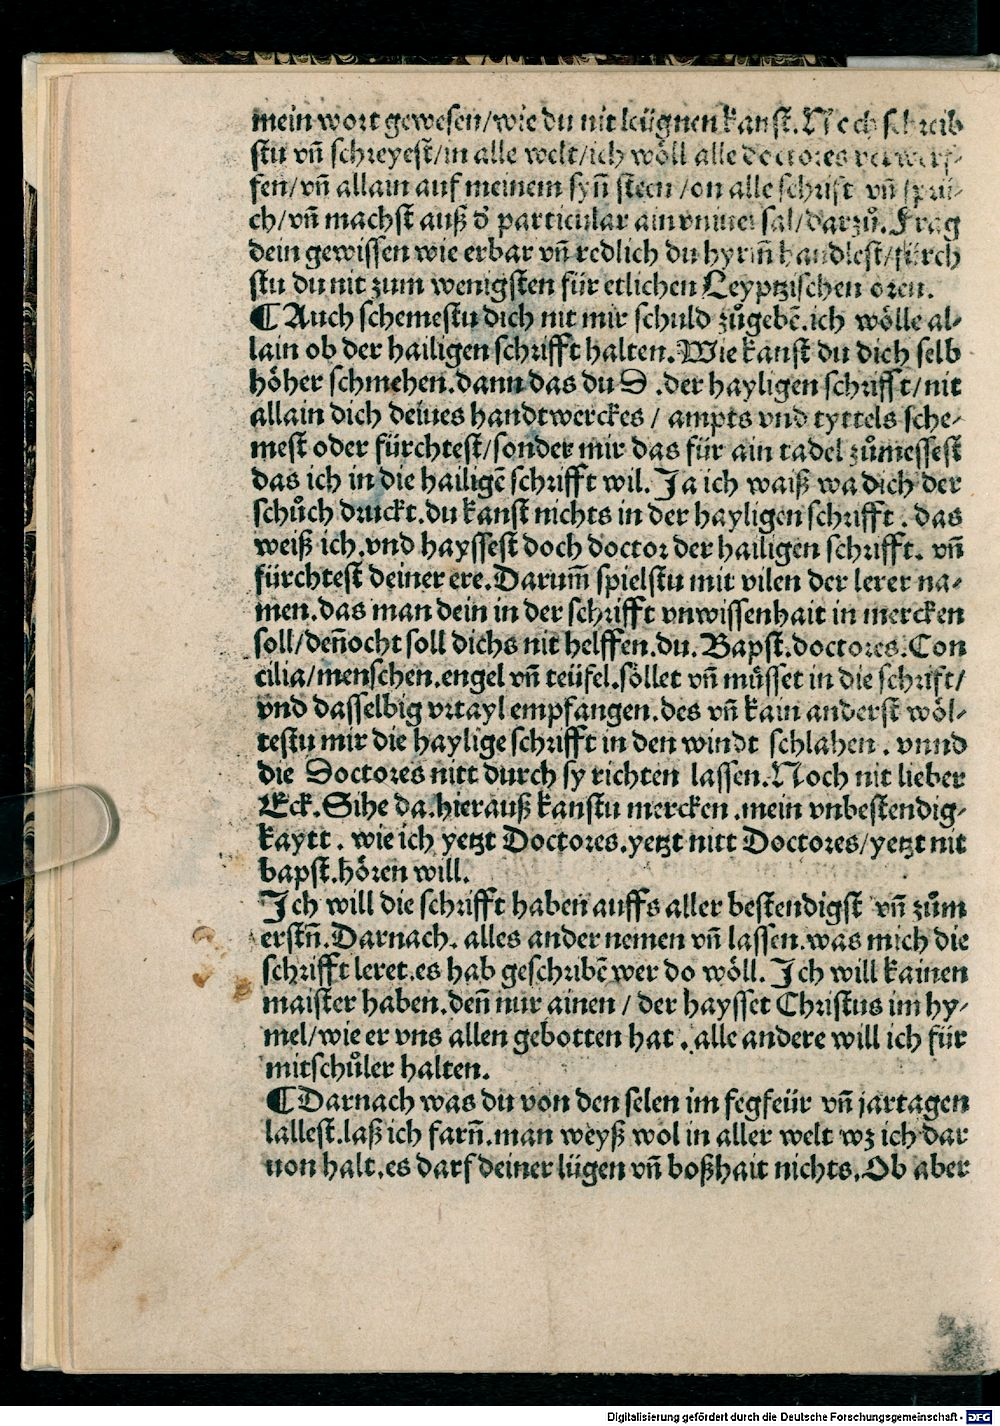 mein wort gewesen/wie du nit leügnen kanst. Noch schreib
stu vñ schreyest/in alle welt/ich wöll alle doctores verwerf-
fen/vñ allain auf meinem syñ steen/on alle schrift vñ sprü-
ch/vñ machst auß d̕ particular ain vniuersal/darzů. Frag
dein gewissen wie erbar vñ redlich du hyrin̄ handlest/fürch
stu du nit zum wenigsten für etlichen Leyptzischen oren.
¶ Auch schemestu dich nit mir schuld zůgebē.ich wölle al-
lain ob der hailigen schrifft halten. Wie kanst du dich selb
höher schmehen.dann das du D .der hayligen schrifft/nit
allain dich deines handtwerckes / ampts vnd tyttels sche-
mest oder fürchtest/sonder mir das für ain tadel zůmessest
das ich in die hailigē schrifft wil. Ja ich waiß wa dich der
schůch druckt.du kanst nichts in der hayligen schrifft . das
weiß ich.vnd hayssest doch doctor der hailigen schrifft. vñ
fürchtest deiner ere.Darum̄ spielstu mit vilen der lerer na-
men.das man dein in der schrifft vnwissenhait in mercken
soll/deñocht soll dichs nit helffen.du. Bapst.doctores.Con
cilia/menschen.engel vñ teüfel.söllet vñ müsset in die schrift/
vnd dasselbig vrtayl empfangen.des vñ kain anderst wöl-
testu mir die haylige schrifft in den windt schlahen . vnnd
die Doctores nitt durch sy richten lassen.Noch nit lieber
Eck.Sihe da.hierauß kanstu mercken .mein vnbestendig-
kaytt . wie ich yetzt Doctores.yetzt nitt Doctores/yetzt nit
bapst.hören will.
Ich will die schrifft haben auffs aller bestendigst vñ zům
erstñ.Darnach. alles ander nemen vñ lassen.was mich die
schrifft leret.es hab geschribē wer do wöll. Ich will kainen
maister haben.deñ nur ainen / der haysset Christus im hy-
mel/wie er vns allen gebotten hat . alle andere will ich für
mitschůler halten.
¶ Darnach was du von den selen im fegfeür vñ jartagen
lallest.laß ich farñ.man weyß wol in aller welt wz ich dar
uon halt.es darf deiner lügen vñ boßhait nichts.Ob aber
Digitalisierung gefördert durch die Deutsche Forschungsgemeinschaft - DFG